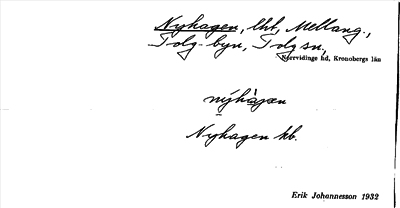 Nyhagen, lht, Mellang.,
Tolg-byn, Tolg sn,
Norrvidinge hd, Kronobergs län
nýhàgən
Nyhagen kb.
Erik Johannesson 1932